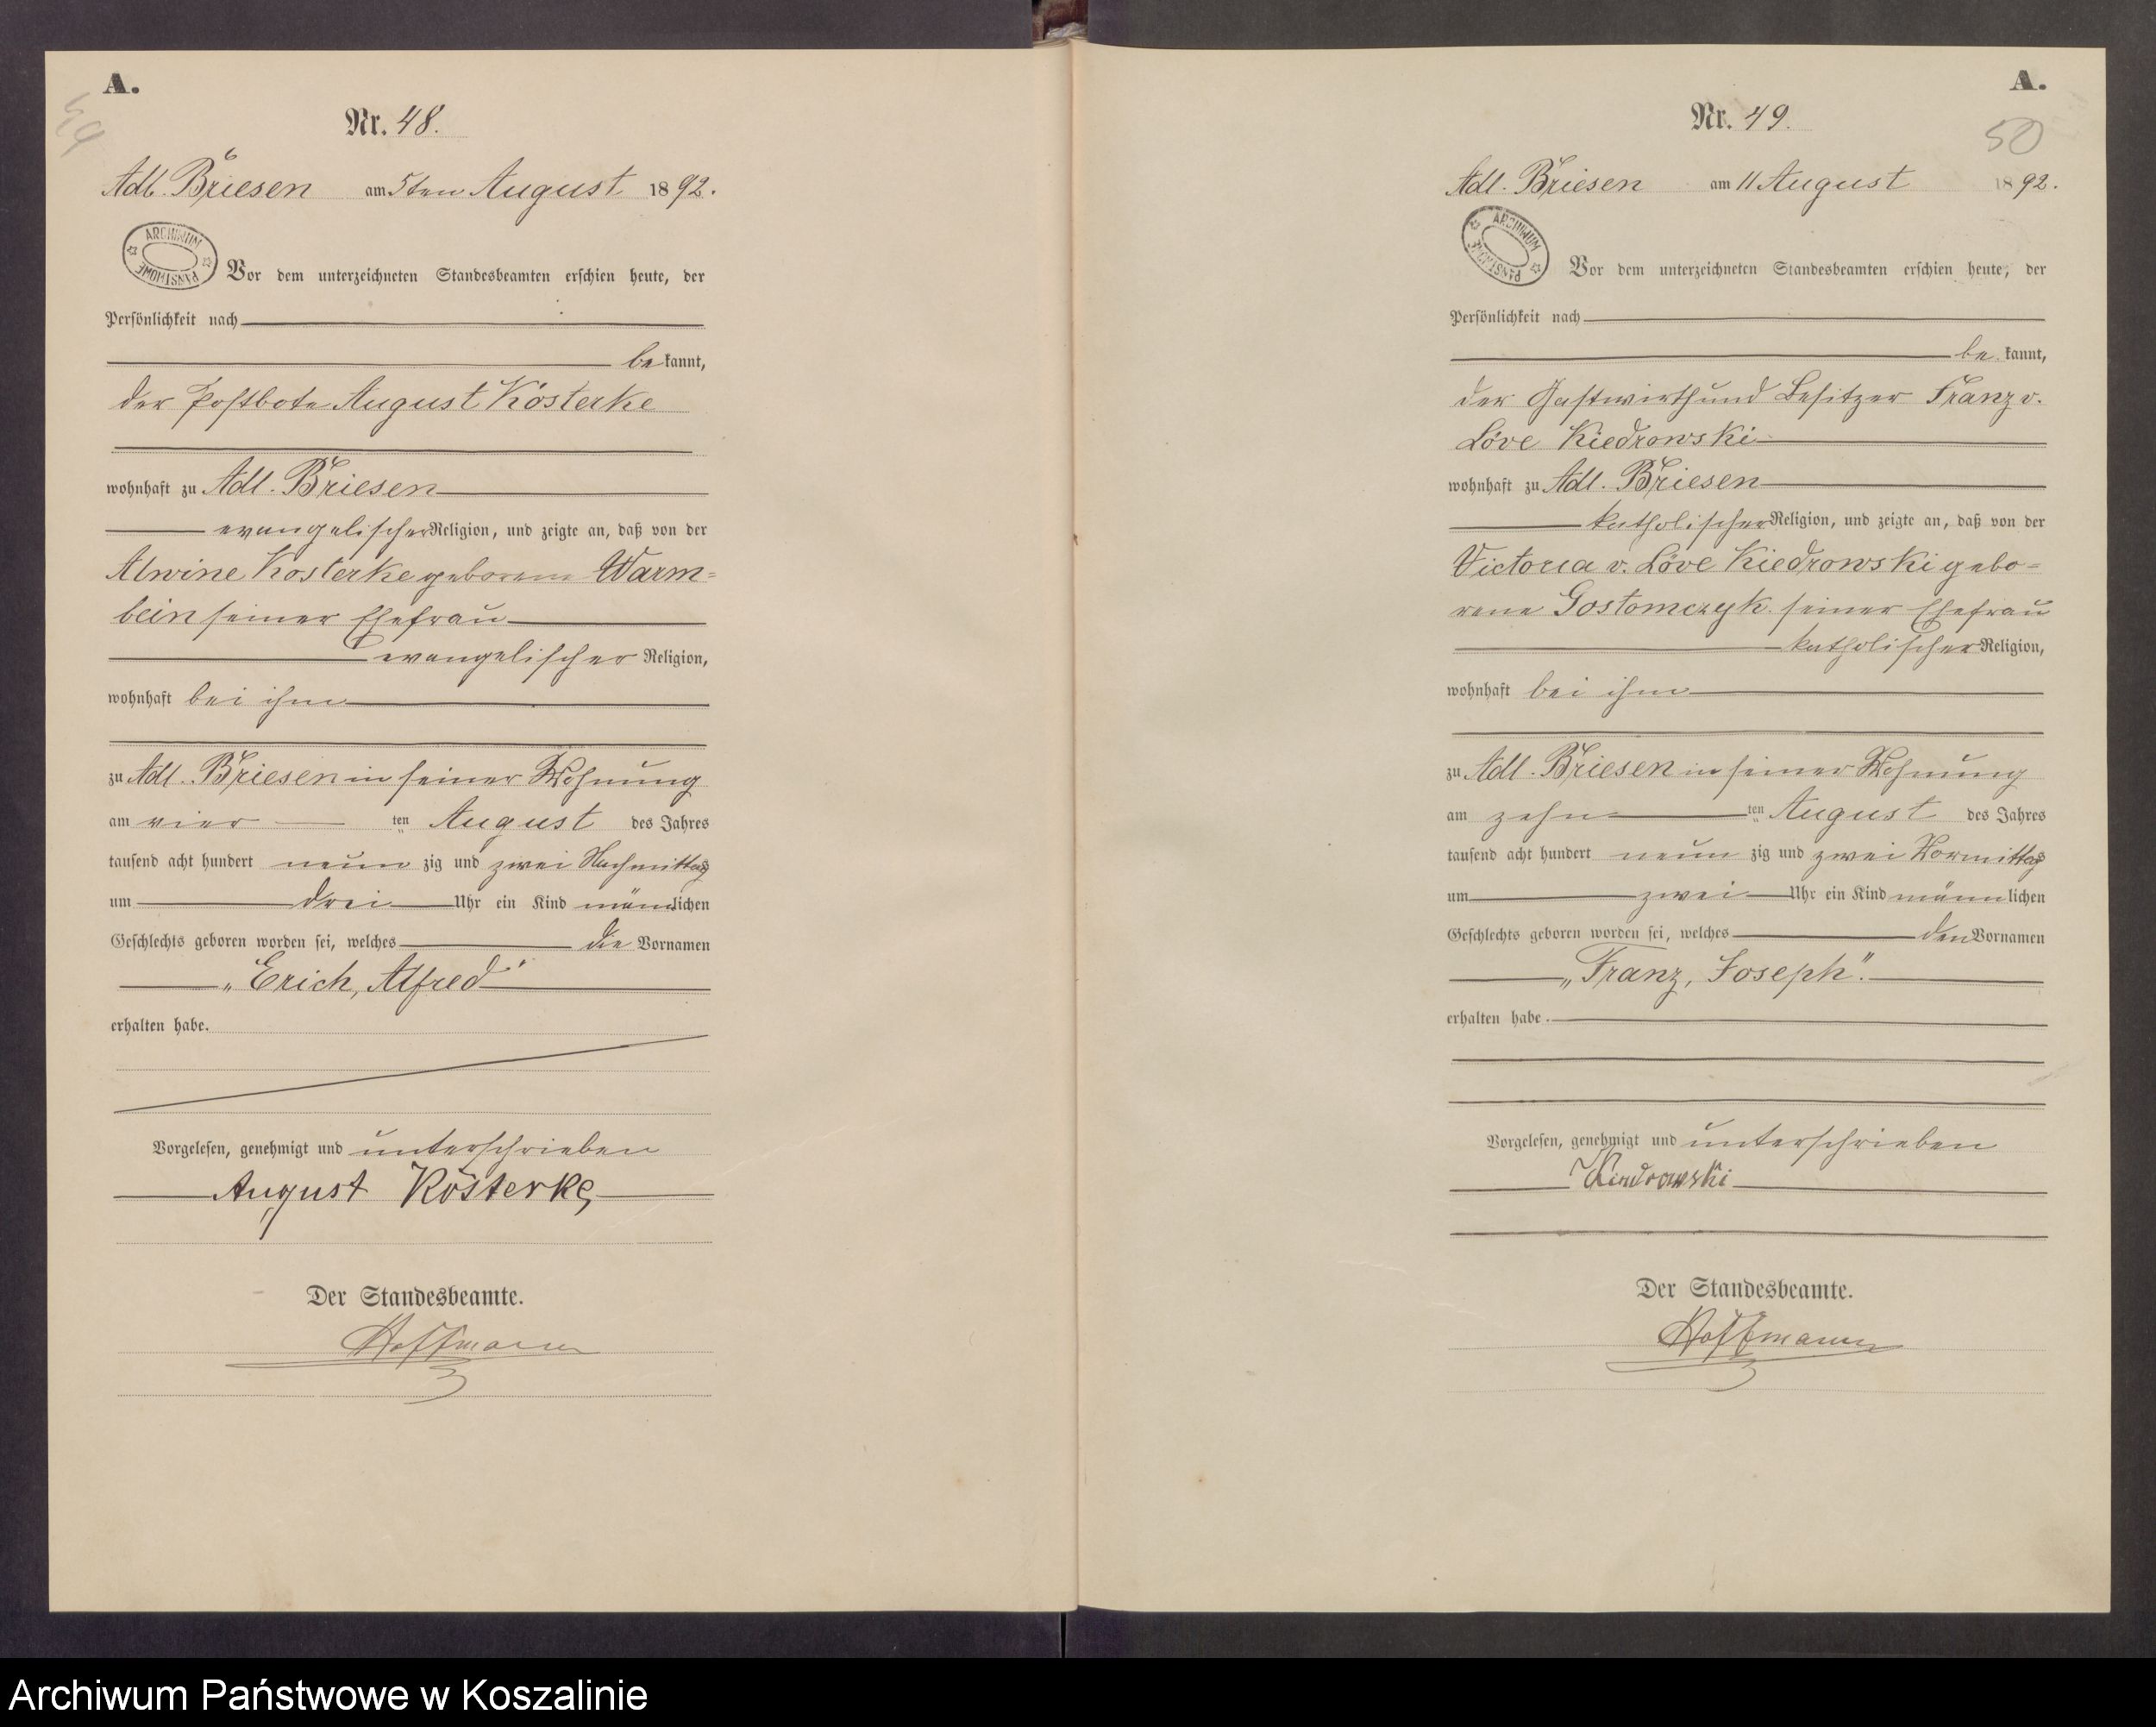 A.
49
Nr. 48.
Adl. Briesen am 5ten August 1892.
ARCHIWUM PAŃSTWOWE
Vor dem unterzeichneten Standesbeamten erschien heute, der
Persönlichkeit nach
bekannt,
der Postbote August Kösterke
wohnhaft zu Adl. Briesen
evangelischer Religion, und zeigte an, daß von der
Alwine Kosterke geborene Warm=
bein seiner Ehefrau
evangelischer Religion,
wohnhaft bei ihm
zu Adl. Briesen in seiner Wohnung
am vier ten August des Jahres
tausend acht hundert neunzig und zwei Nachmittag
um drei Uhr ein Kind männlichen
Geschlechts geboren worden sei, welches die Vornamen
„Erich, Alfred"
erhalten habe.
Vorgelesen, genehmigt und unterschrieben
August Kösterke,
Der Standesbeamte.
Hoffmann
A.
50
Nr. 49.
Adl. Briesen am 11 August 1892.
ARCHIWUM PAŃSTWOWE
Vor dem unterzeichneten Standesbeamten erschien heute, der
Persönlichkeit nach
bekannt,
der Gastwirth und Besitzer Franz v.
Löve Kiedrowski
wohnhaft zu Adl. Briesen
katholischer Religion, und zeigte an, daß von der
Victoria v. Löve Kiedrowski gebo=
rene Gostomczyk seiner Ehefrau
katholischer Religion,
wohnhaft bei ihm
zu Adl. Briesen in seiner Wohnung
am zehn ten August des Jahres
tausend acht hundert neunzig und zwei Vormittag
um zwei Uhr ein Kind männlichen
Geschlechts geboren worden sei, welches den Vornamen
„Franz, Joseph".
erhalten habe.
Vorgelesen, genehmigt und unterschrieben
Kiedrowski
Der Standesbeamte.
Hoffmann
Archiwum Państwowe w Koszalinie